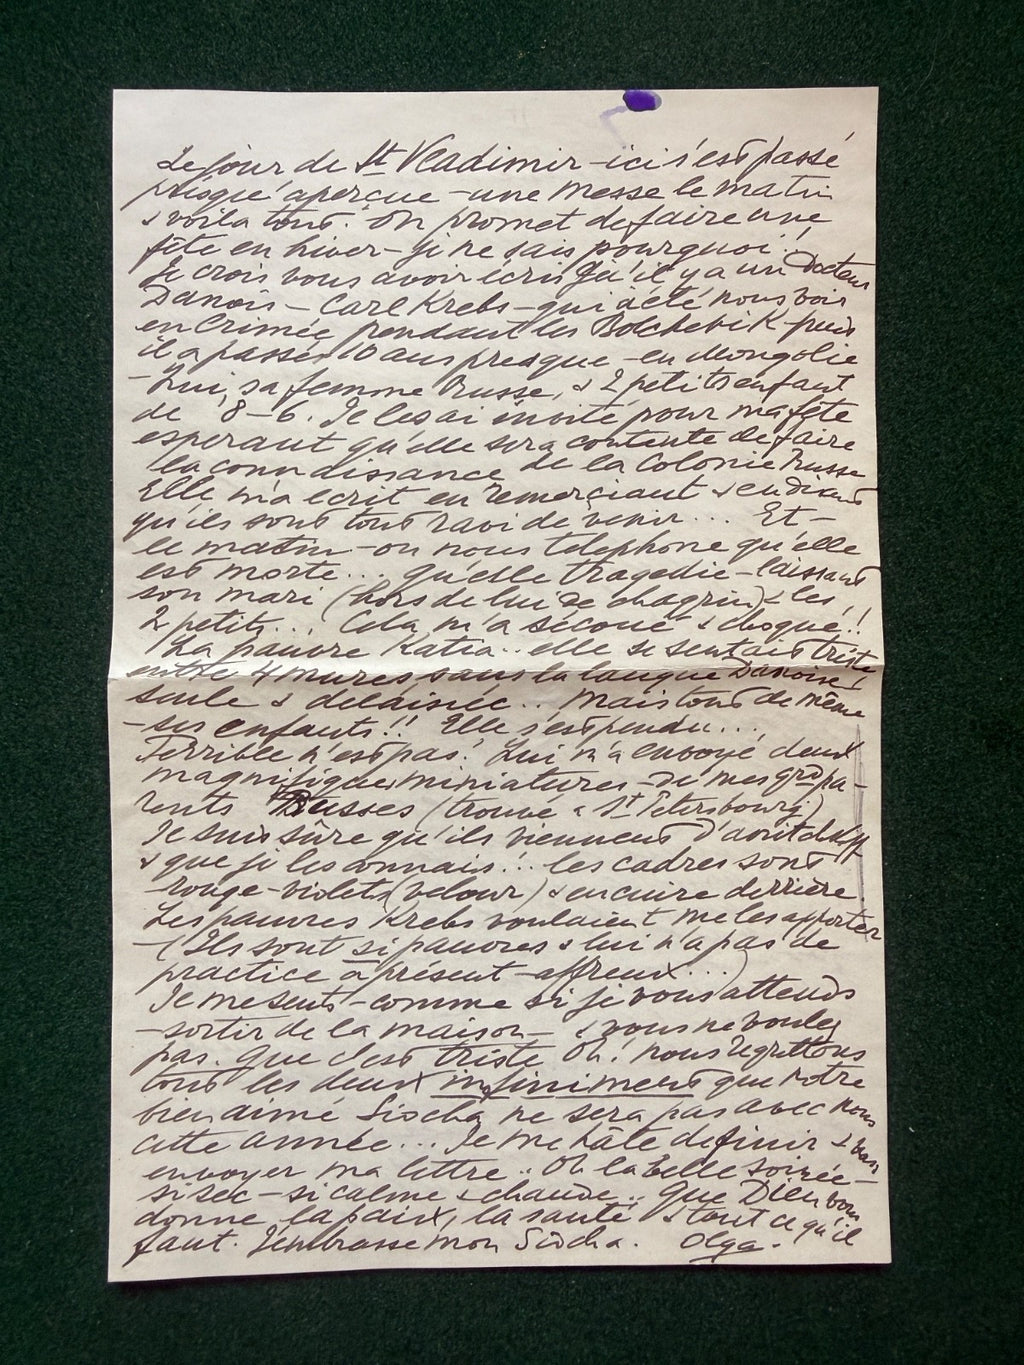 Le jour de St Vladimir - ici s'est passé
presqu'aperçue - une messe le matin
& voila tout! On promet de faire une
fête en hiver - je ne sais pourquoi!
Je crois vous avoir écris qu'il y a un Docteur
Danois - Carl Krebs - qui a été nous voir
en Crimée pendant les Bolchevik - puis
il a passé 10 ans presque - en Mongolie
- Lui, sa femme Russe, & 2 petits enfant
de 8 - 6. Je les ai invité pour ma fête
esperant qu'elle sera contente de faire
la connaissance de la Colonie Russe
Elle m'a ecrit en remerçiant & en disant
qu'ils sont tout ravi de venir... Et -
le matin - on nous telephone qu'elle
est morte... qu'elle tragedie - laissant
son mari (hors de lui de chagrin) & les
2 petits... Cela m'a sécoué & choqué!!
La pauvre Katia.. elle se sentait triste
entre 4 mures sans la langue Danoise!
seule & delaisée.. Mais tout de même
- ses enfants!! Elle s'est pendu...
Terrible n'est pas! Lui m'a envoyé deux
magnifiques miniatures - de mes grds pa-
rents Russes (trouvé à St Petersbourg)
Je suis sûre qu'ils viennent d'
& que je les connais!.. les cadres sont
rouge-violets (velour) & en cuire derrière.
Les pauvres Krebs voulaient me les apporter
- (Ils sont si pauvres & lui n'a pas de
practice à présent - affreux...)
Je me sents - comme si je vous attends
- sortir de la maison - & vous ne voulez
pas. Que c'est triste Oh! nous regrettons
tout les deux infiniment que notre
bien aimé Siocha ne sera pas avec nous
cette année... Je me hâte de finir &
envoyer ma lettre.. Oh la belle soirée -
si sec - si calme & chaude.. Que Dieu vous
donne la paix, la santé & tout ce qu'il
faut. J'embrasse mon Siocha. Olga.